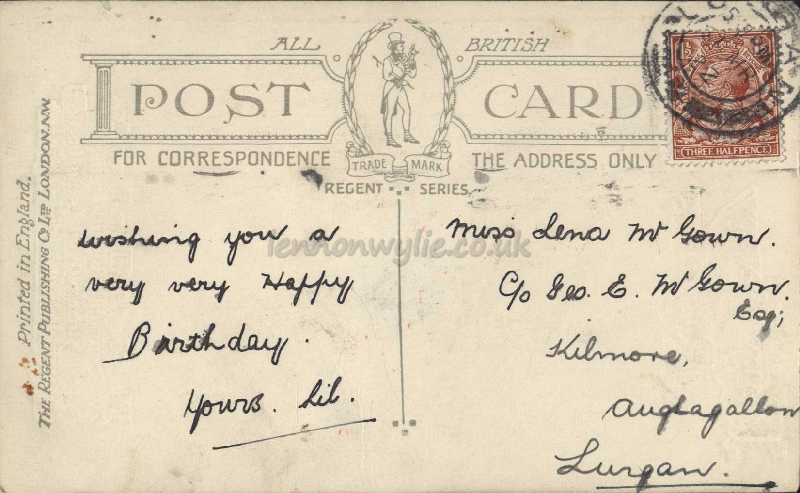 ALL BRITISH
POST CARD
FOR CORRESPONDENCE THE ADDRESS ONLY
TRADE MARK
REGENT SERIES
(THREE HALFPENCE)
Printed in England.
THE REGENT PUBLISHING CO LTD LONDON. N.W.
lennonwylie.co.uk
Wishing you a
very very Happy
Birthday.
Yours. Lil.
Miss Lena McGown.
C/o Geo. E. McGown.
Esq;
Kilmore,
Aughagallon
Lurgan.